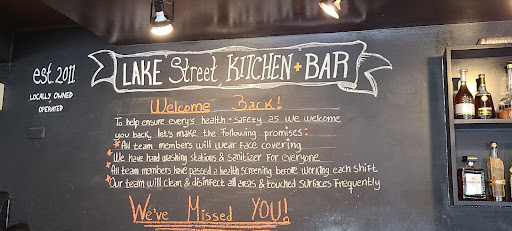 est. 2011
LOCALLY OWNED
+
OPERATED
LAKE Street KITCHEN + BAR
Welcome Back!
To help ensure every's health + safety as we welcome
you back, let's make the following promises:
* All team members will wear face covering
* We have hand washing stations & sanitizer for everyone
* All team members have passed a health screening before working each shift
* Our team will clean & disinfect all areas & touched surfaces frequently
We've Missed YOU!